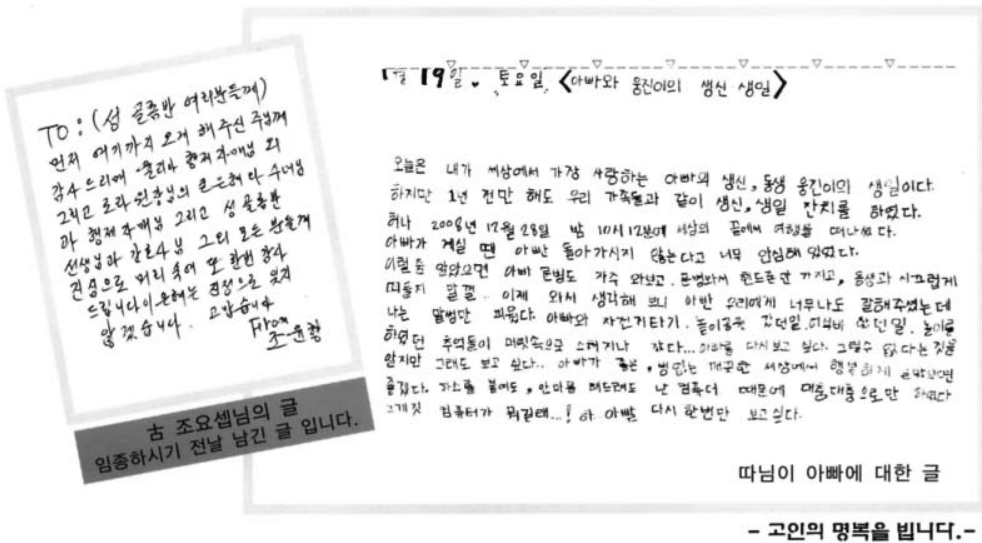 TO : (성 골롬반 여러분들께)
먼저 여기까지 오게 해 주신 주님께
감사 드리며 형제 자매님 외
그리고 로라 원장님의 큰 은혜와 수녀님
과 형제 자매님 그리고 성 골롬반
선생님과 간호사님 그외 모든 분들께
진심으로 머리 숙여 또 한번 감사
드립니다 이 은혜는 진정으로 잊지
않겠습니다. 고맙습니다
From
조
古 조요셉님의 글
임종하시기 전날 남긴 글 입니다.
1월 19일. 토요일, <아빠와 웅진이의 생신·생일>
오늘은 내가 세상에서 가장 사랑하는 아빠의 생신, 동생 웅진이의 생일이다.
하지만 1년 전만 해도 우리 가족들과 같이 생신, 생일 잔치를 하였다.
허나 2008년 12월 28일 밤 10시 12분에 세상의 끝에서 여행을 떠나셨다.
아빠가 계실 땐 아빤 돌아가시지 않는다고 너무 안심해 있었다.
이럴 줄 알았으면 아빠 문병도 자주 와보고, 문병와서 핸드폰만 가지고, 동생과 시끄럽게
떠들지 말껄.. 이제 와서 생각해 보니 아빤 우리에게 너무나도 잘해주셨는데
나는 말썽만 피웠다. 아빠와 자전거타기, 놀이공원 갔던일, 놀이를
하였던 추억들이 머릿속으로 스쳐지나 갔다... 아빠를 다시 보고 싶다. 그럴수 없다는 것을
알지만 그래도 보고 싶다.. 아빠가 좋은, 병없는 깨끗한 세상에서 행복하게
좋겠다. 가스를 붙여도, 안마를 해드려도 난 컴퓨터 때문에 대충대충으로만 하였다
그까짓 컴퓨터가 뭐길래...! 아 아빨 다시 한번만 보고싶다.
따님이 아빠에 대한 글
- 고인의 명복을 빕니다.-